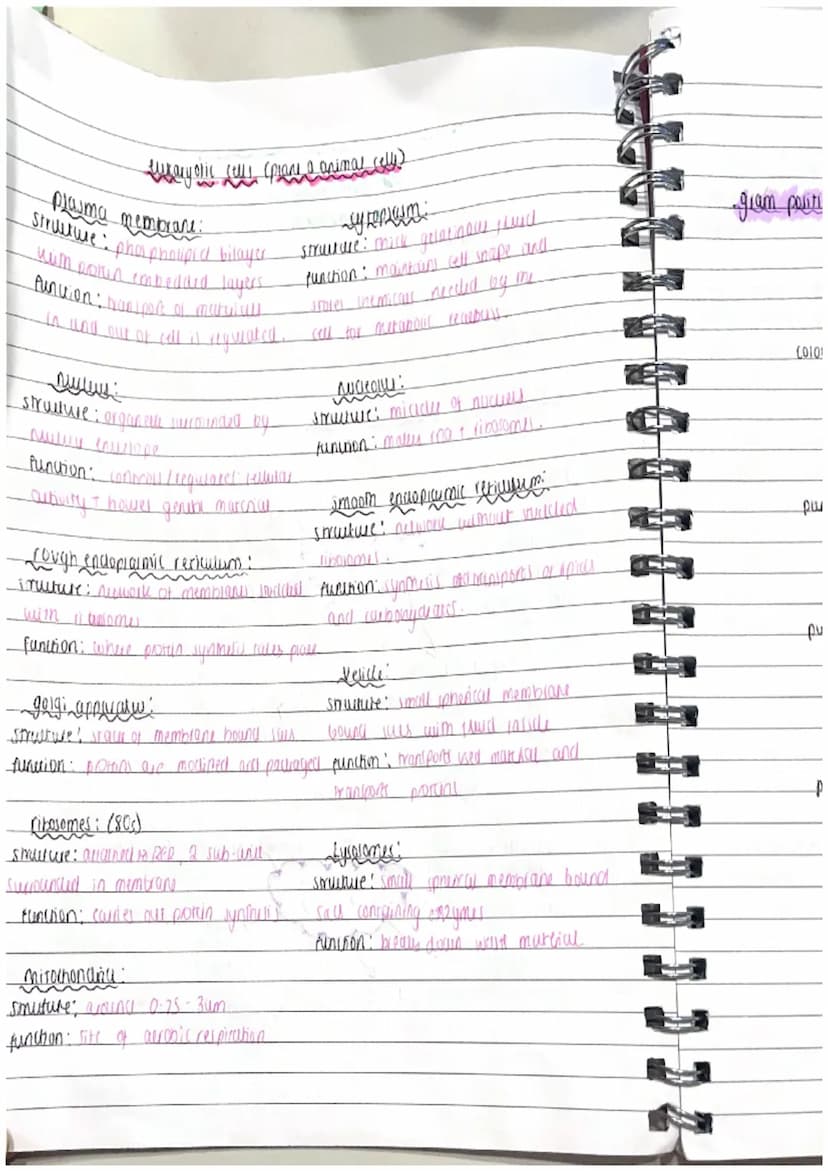 eukaryotic cells (plant & animal cells)
plasma membrane:
structure: phospholipid bilayer
with protein embedded layers
function: transport of materials
in and out of cell is regulated.
cytoplasm:
structure: thick gelatinous fluid
function: maintains cell shape and
stores chemicals needed by the
cell for metabolic
nucleus:
structure: organelle surrounded by
nuclear envelope
function: controls/regulates cellular
activity + houses genetic material
nucleolus:
structure: middle of nucleus
function: makes rna + ribosomes.
smooth endoplasmic reticulum:
structure: network without studded
ribosomes.
function: synthesis and transports of lipids
and carbohydrates.
rough endoplasmic reticulum:
structure: network of membranes studded
with ribosomes
function: where protein synthesis takes place
vesicle:
structure: small spherical membrane
bound sacs with fluid inside
function: transports used material and
transports proteins
golgi apparatus:
structure: stack of membrane bound sacs
function: proteins are modified and packaged
ribosomes: (80s)
structure: attached to RER, 2 sub-unit
surrounded in membrane
function: carries out protein synthesis
lysosomes:
structure: small spherical membrane bound
sacs containing enzymes
function: breaks down waste material
mitochondria:
structure: around 0.25 - 3um
function: site of aerobic respiration
gram positi
colo